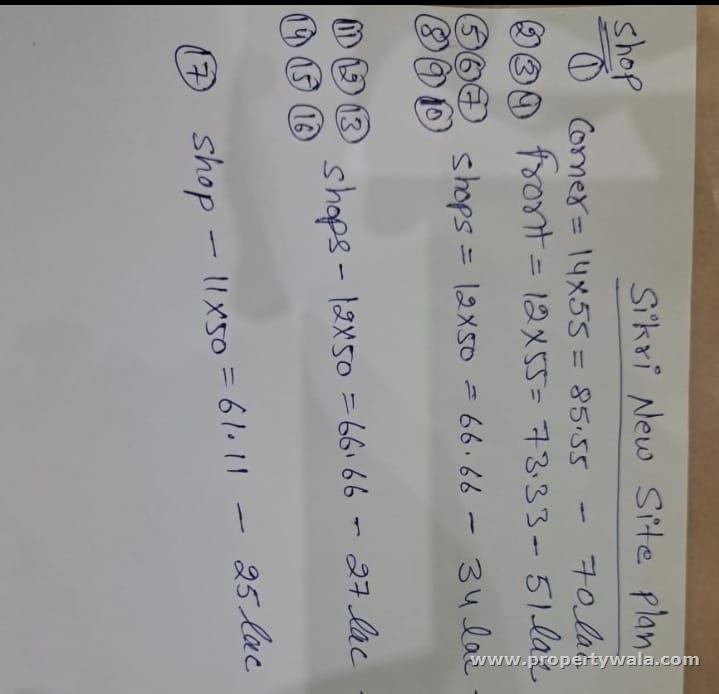 Sikri New Site Plan
Shop
① Corner = 14x55 = 85.55 - 70 lac
② ③ ④ front = 12x55 = 73.33 - 51 lac
⑤ ⑥ ⑦
⑧ ⑨ ⑩ shops = 12x50 = 66.66 - 34 lac -
⑪ ⑫ ⑬ shops - 12x50 = 66.66 - 27 lac -
⑭ ⑮ ⑯
⑰ shop - 11x50 = 61.11 - 25 lac
www.propertywala.com